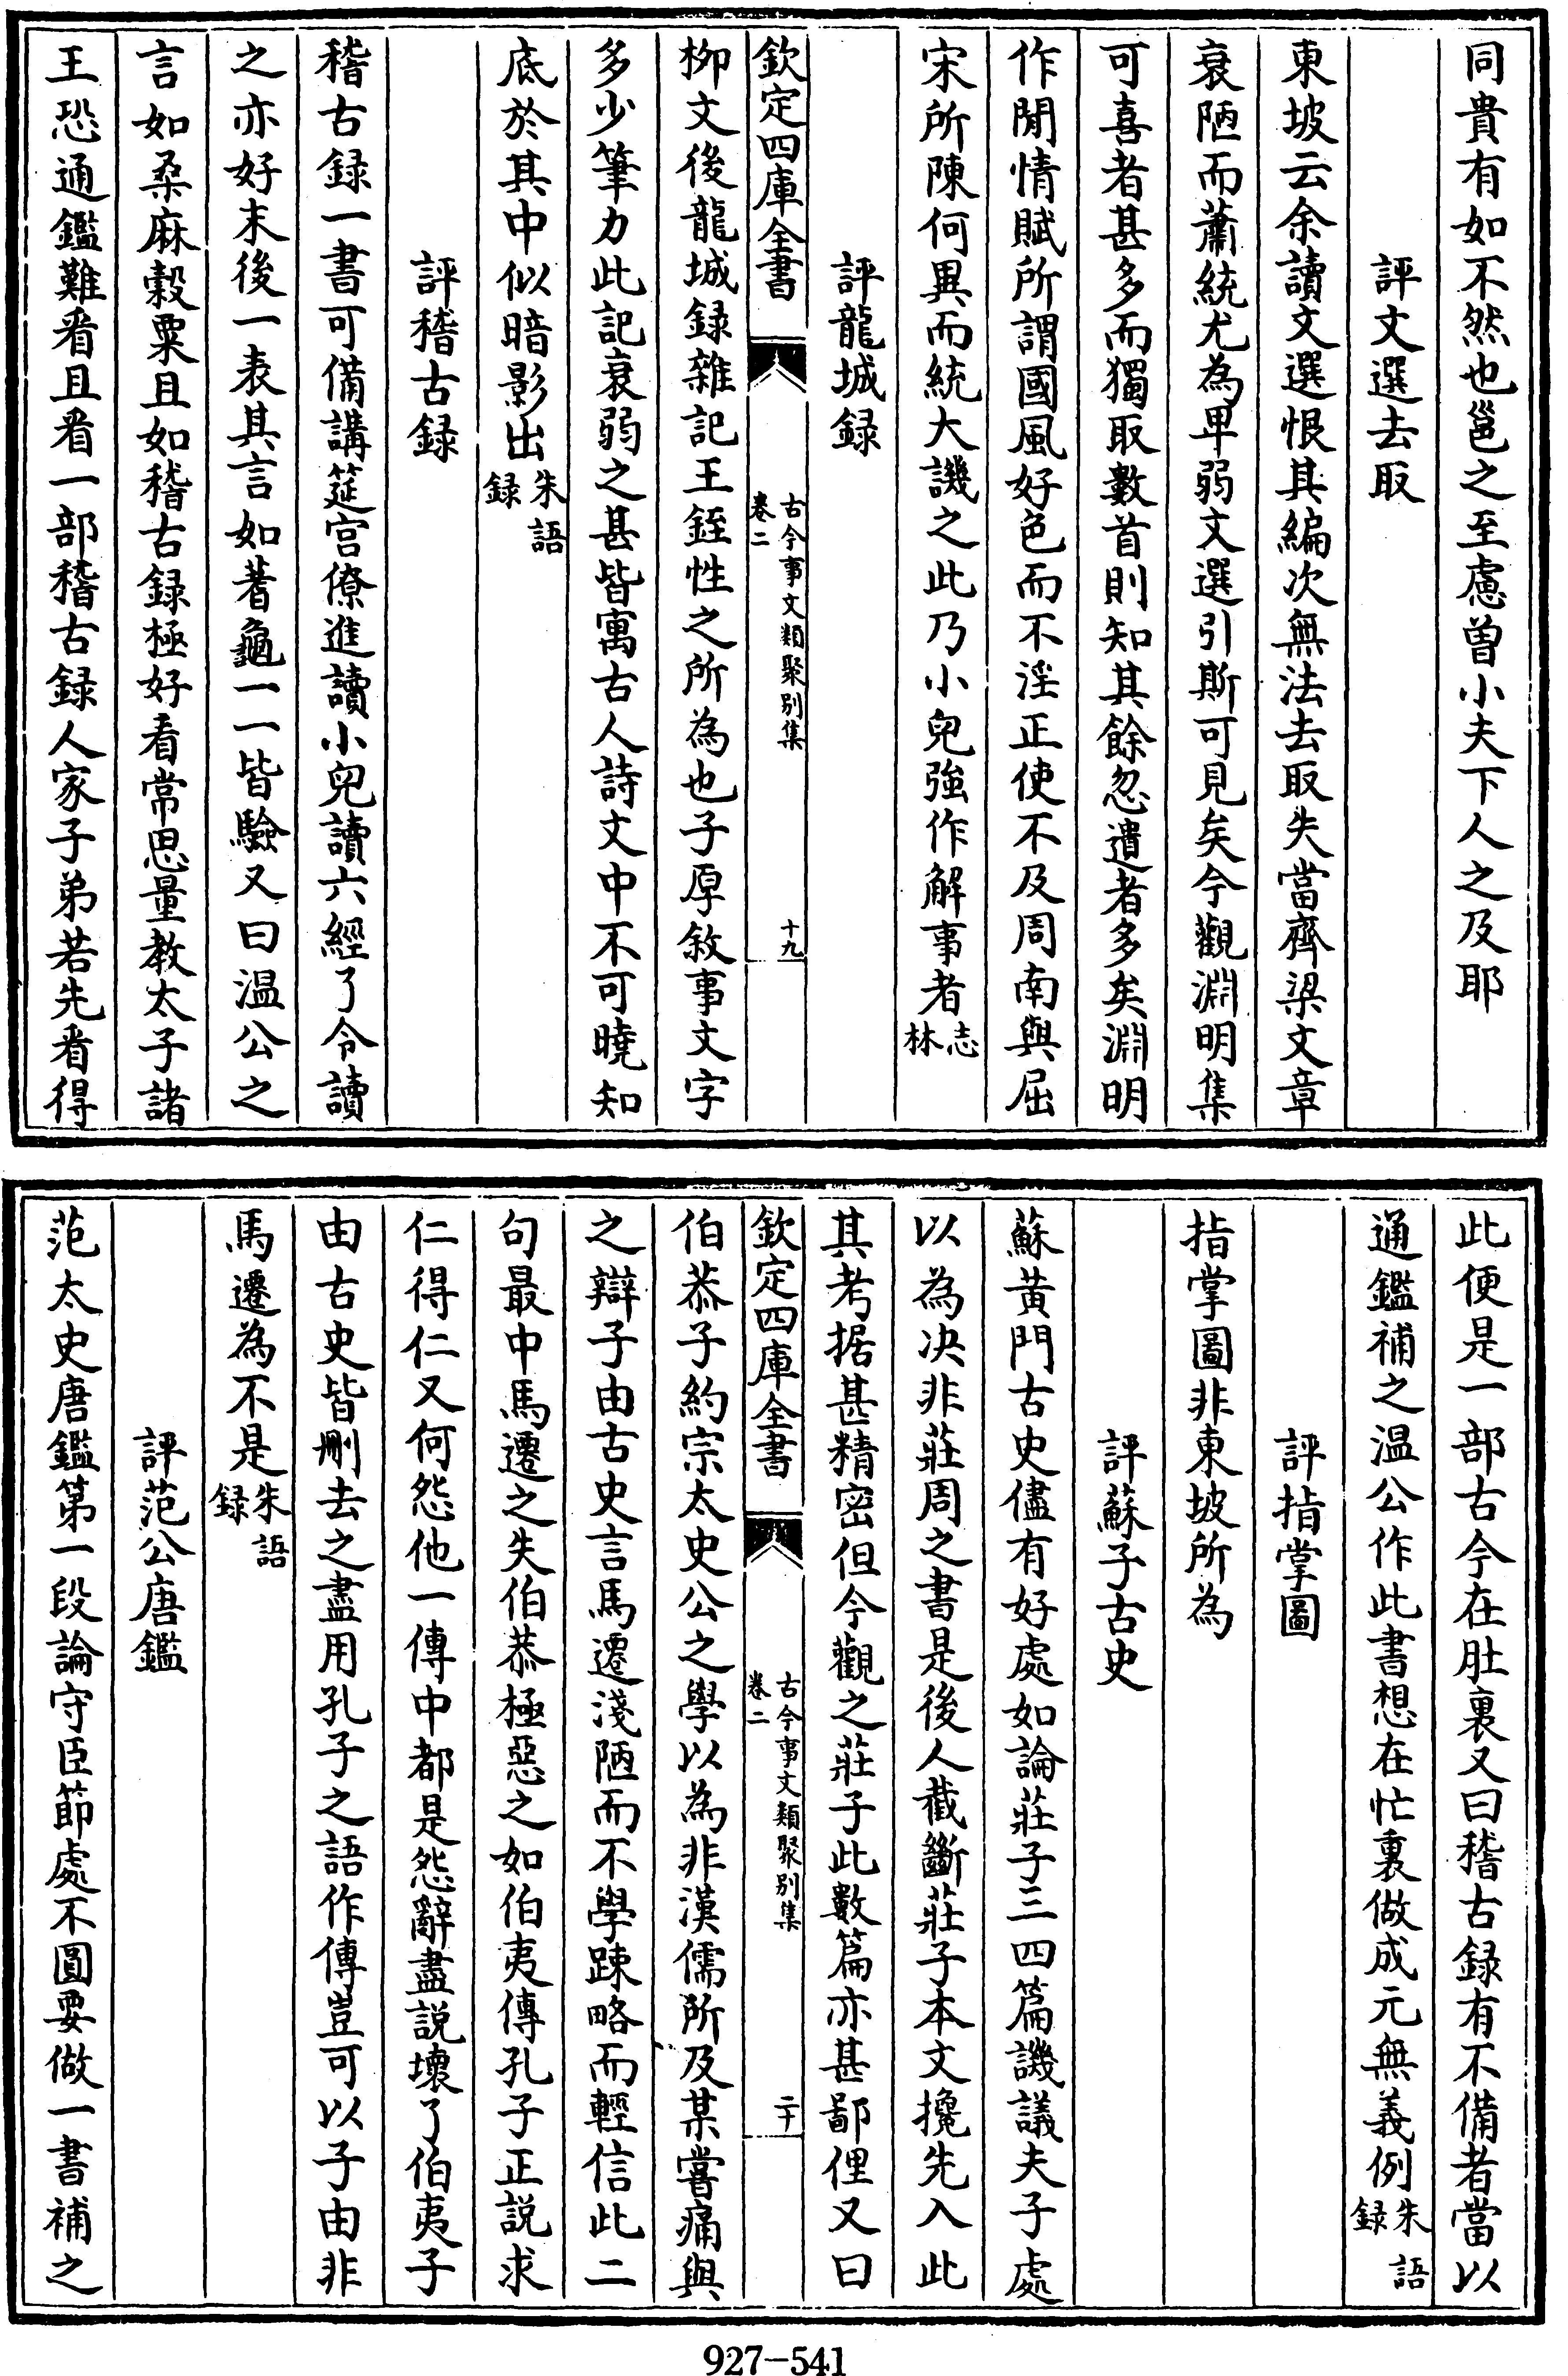 同貴有如不然也邕之至慮曽小夫下人之及耶
評文選去取
東坡云余讀文選恨其編次無法去取失當齊梁文章
衰陋而蕭統尤為卑弱文選引斯可見矣今觀淵明集
可喜者甚多而獨取數首則知其餘忽遺者多矣淵明
作閒情賦所謂國風好色而不淫正使不及周南與屈
宋所陳何異而統大譏之此乃小兒強作解事者志林
評龍城録
欽定四庫全書 古今事文類聚别集 卷二 十九
柳文後龍城録雜記王銍性之所為也子厚敘事文字
多少筆力此記衰弱之甚皆寓古人詩文中不可曉知
底於其中似暗影出朱語録
評稽古録
稽古録一書可備講筵宫僚進讀小兒讀六經了令讀
之亦好末後一表其言如蓍龜一一皆驗又曰温公之
言如桑麻榖粟且如稽古録極好看常思量教太子諸
王恐通鑑難看且看一部稽古録人家子弟若先看得
此便是一部古今在肚裏又曰稽古録有不備者當以
通鑑補之温公作此書想在忙裏做成元無義例朱語録
評指掌圖
指掌圖非東坡所為
評蘇子古史
蘇黄門古史儘有好處如論莊子三四篇譏議夫子處
以為决非莊周之書是後人截斷莊子本文攙先入此
其考据甚精密但今觀之莊子此數篇亦甚鄙俚又曰
欽定四庫全書 古今事文類聚别集 卷二 二十
伯恭子約宗太史公之學以為非漢儒所及某嘗痛與
之辯子由古史言馬遷淺陋而不學踈略而輕信此二
句最中馬遷之失伯恭極惡之如伯夷傳孔子正説求
仁得仁又何怨他一傳中都是怨辭盡説壞了伯夷子
由古史皆刪去之盡用孔子之語作傳豈可以子由非
馬遷為不是朱語録
評范公唐鑑
范太史唐鑑第一段論守臣節處不圓要做一書補之
927-541